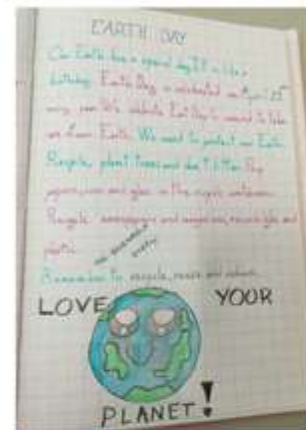 EARTH DAY
Our Earth has a special day. It is like a
birthday. Earth Day is celebrated on April 22
every year. We celebrate Day to
care of our Earth. We need to protect our Earth.
Recycle, plant trees and don't litter.
paper, cans and glass in the recycle containers.
Recycle newspapers and magazines, glass and
plastic.
Remember to recycle, reuse and reduce.
LOVE YOUR
PLANET!